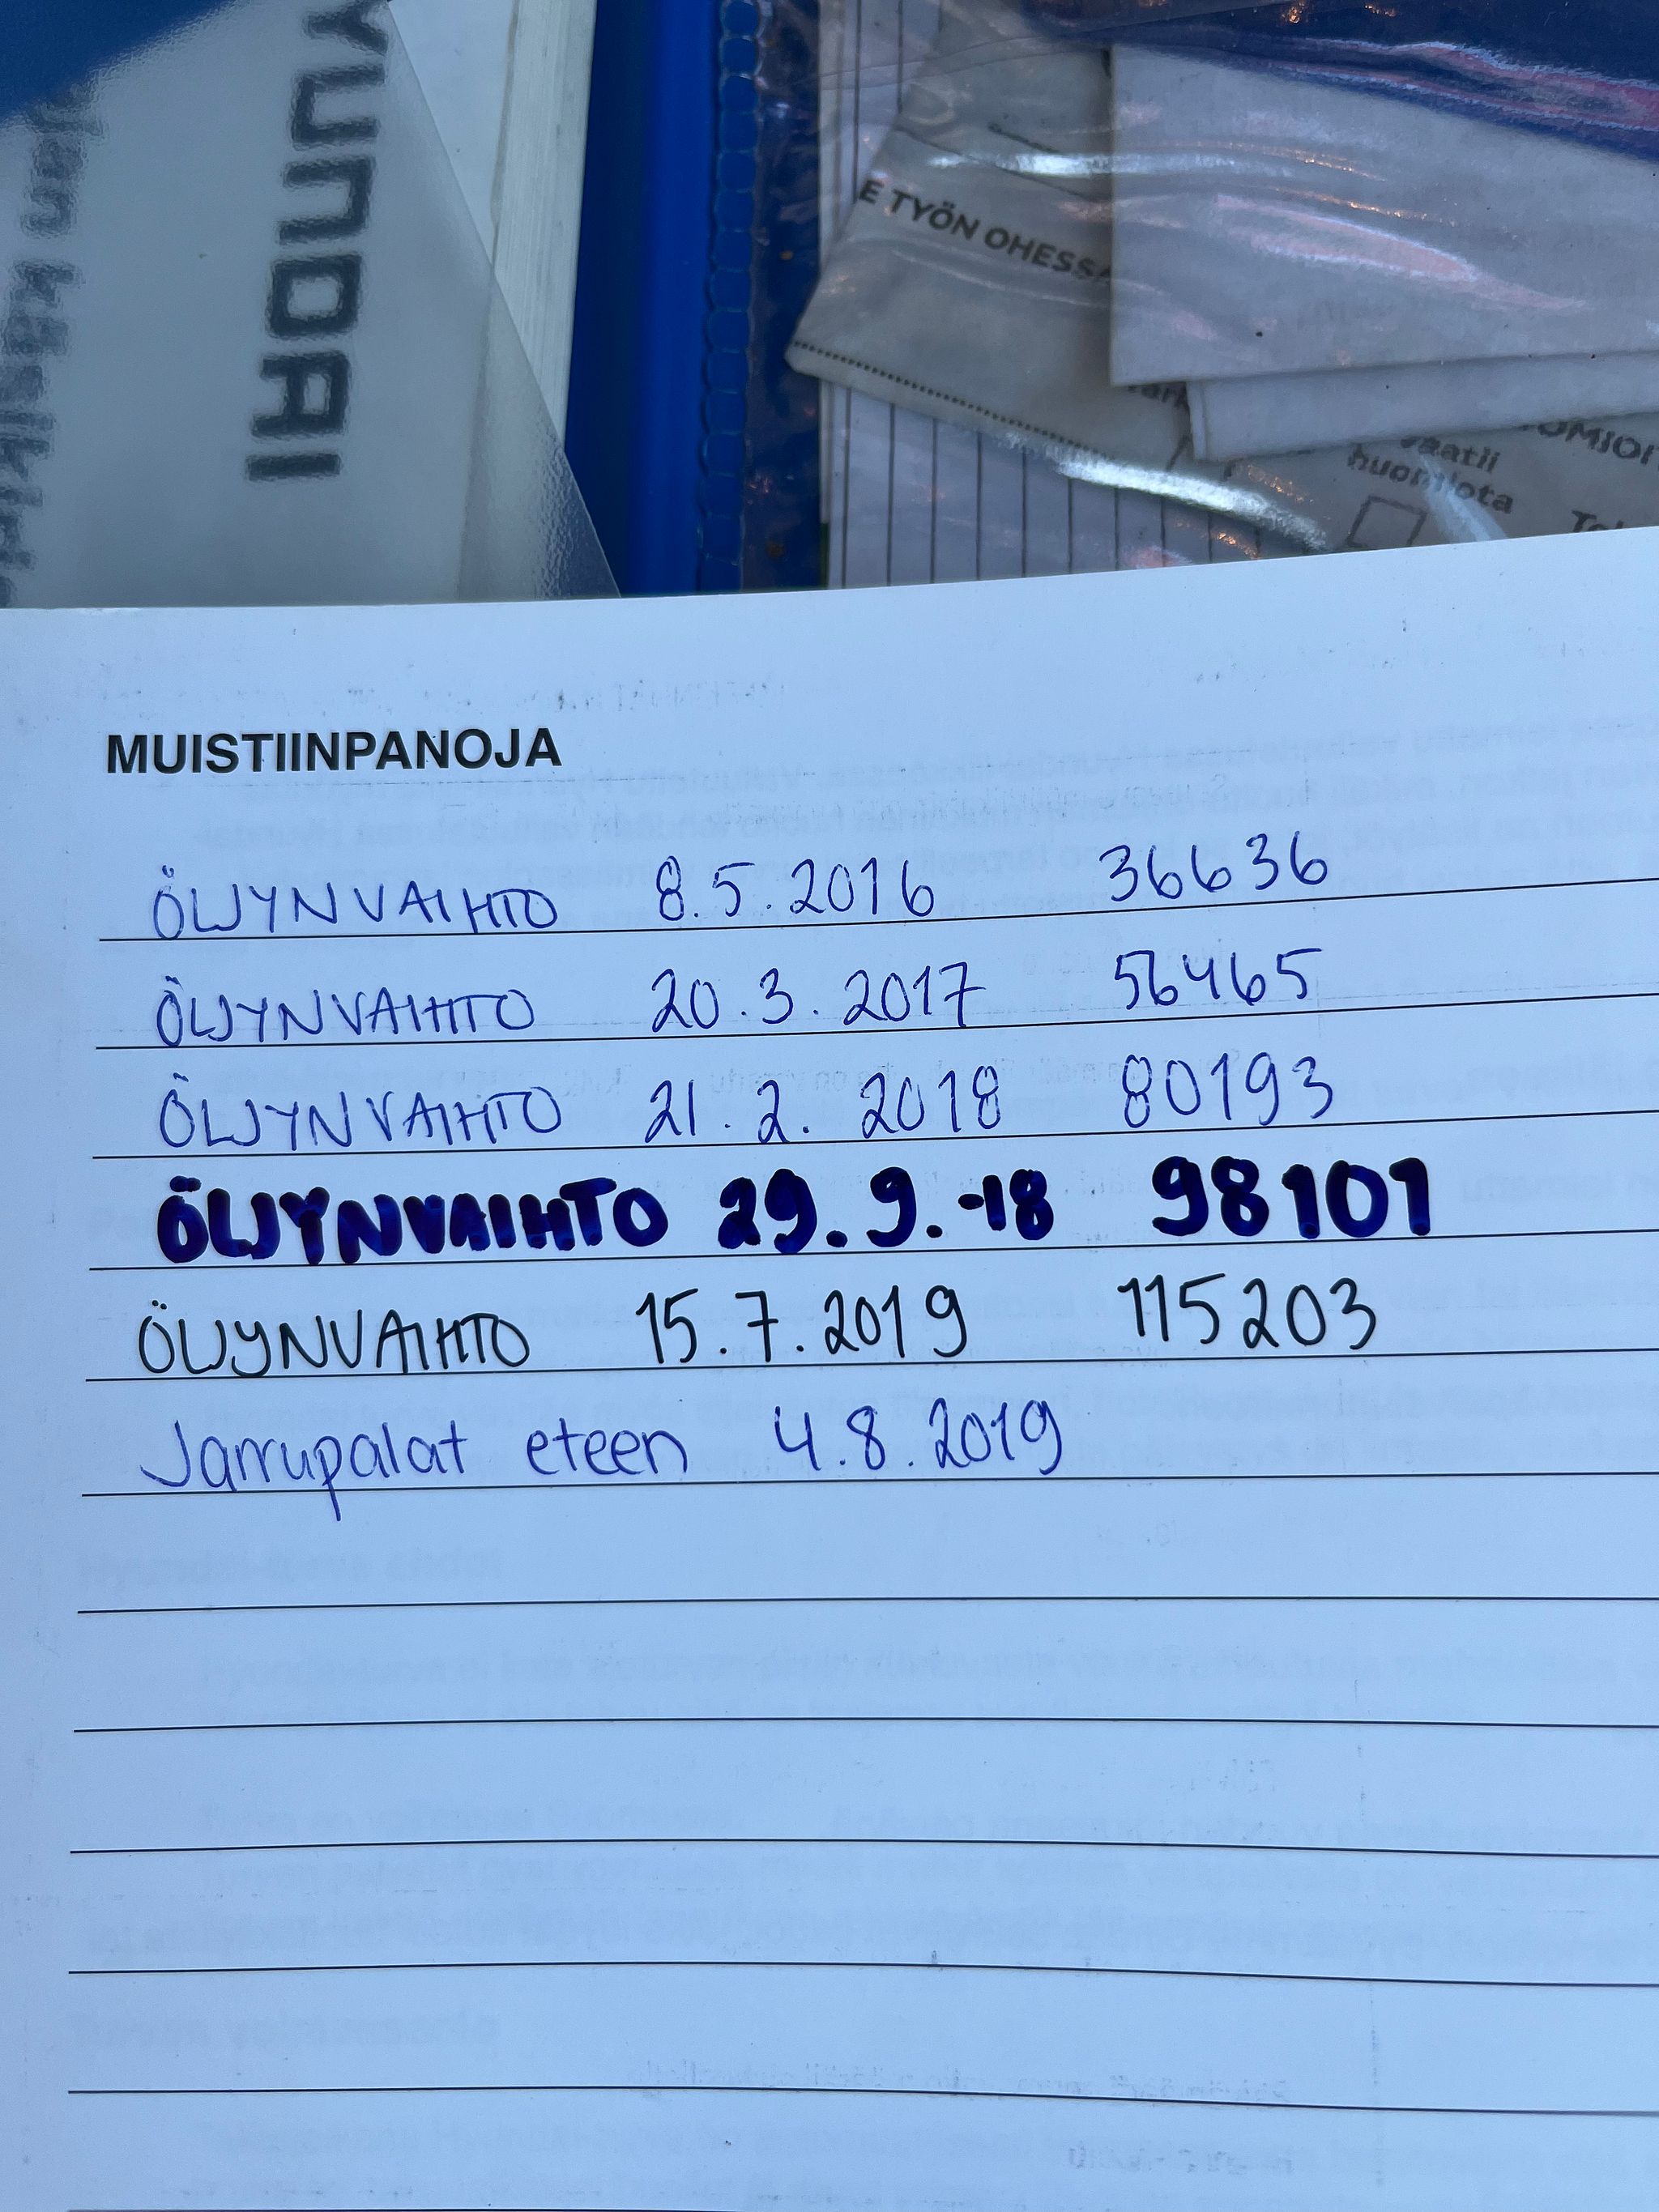 YUNDAI
E TYÖN OHESSA
vaatii
huomiota
MUISTIINPANOJA
ÖLJYNVAIHTO 8.5.2016 36636
ÖLJYNVAIHTO 20.3.2017 56465
ÖLJYNVAIHTO 21.2.2018 80193
ÖLJYNVAIHTO 29.9.-18 98101
ÖLJYNVAIHTO 15.7.2019 115203
Jarrupalat eteen 4.8.2019